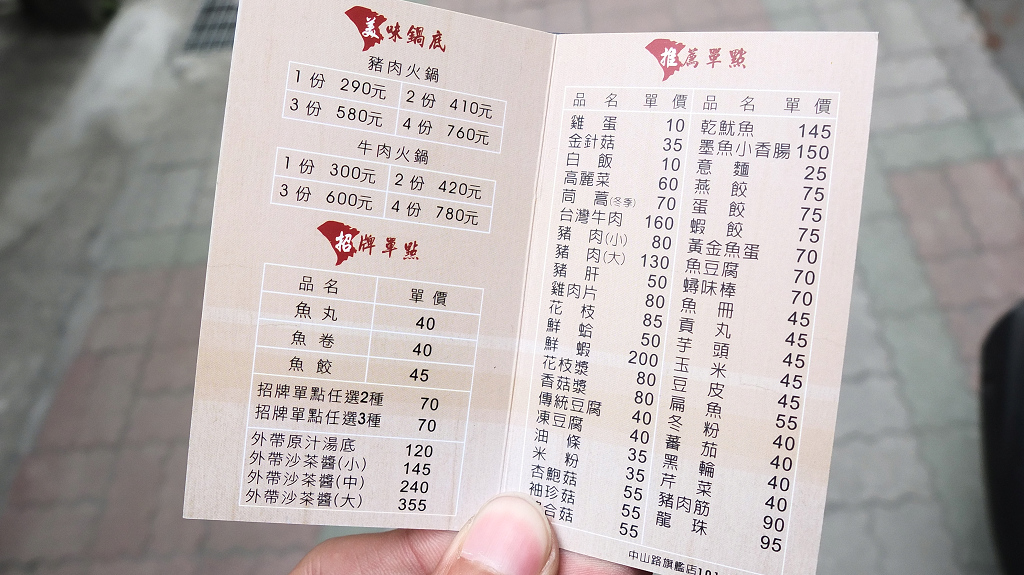 美味鍋底
豬肉火鍋
1份 290元 2份 410元
3份 580元 4份 760元
牛肉火鍋
1份 300元 2份 420元
3份 600元 4份 780元
招牌單點
品名 單價
魚丸 40
魚卷 40
魚餃 45
招牌單點任選2種 70
招牌單點任選3種 70
外帶原汁湯底 120
外帶沙茶醬(小) 145
外帶沙茶醬(中) 240
外帶沙茶醬(大) 355
推薦單點
品名 單價
雞蛋 10
金針菇 35
白飯 10
高麗菜 60
茼蒿(冬季) 70
台灣牛肉 160
豬肉(小) 80
豬肉(大) 130
豬肝 50
雞肉片 80
花枝 85
鮮蛤 50
鮮蝦 200
花枝漿 80
香菇漿 80
傳統豆腐 40
凍豆腐 40
油條 35
米粉 35
杏鮑菇 55
袖珍菇 55
合菇 55
品名 單價
乾魷魚 145
墨魚小香腸 150
意麵 25
燕餃 75
蛋餃 75
蝦餃 75
黃金魚蛋 70
魚豆腐 70
蟳味棒 70
魚冊 45
貢丸 45
芋頭 45
玉米 45
豆皮 45
扁魚 55
冬粉 40
蕃茄 40
黑輪 40
芹菜 40
豬肉筋 90
龍珠 95
中山路旗艦店